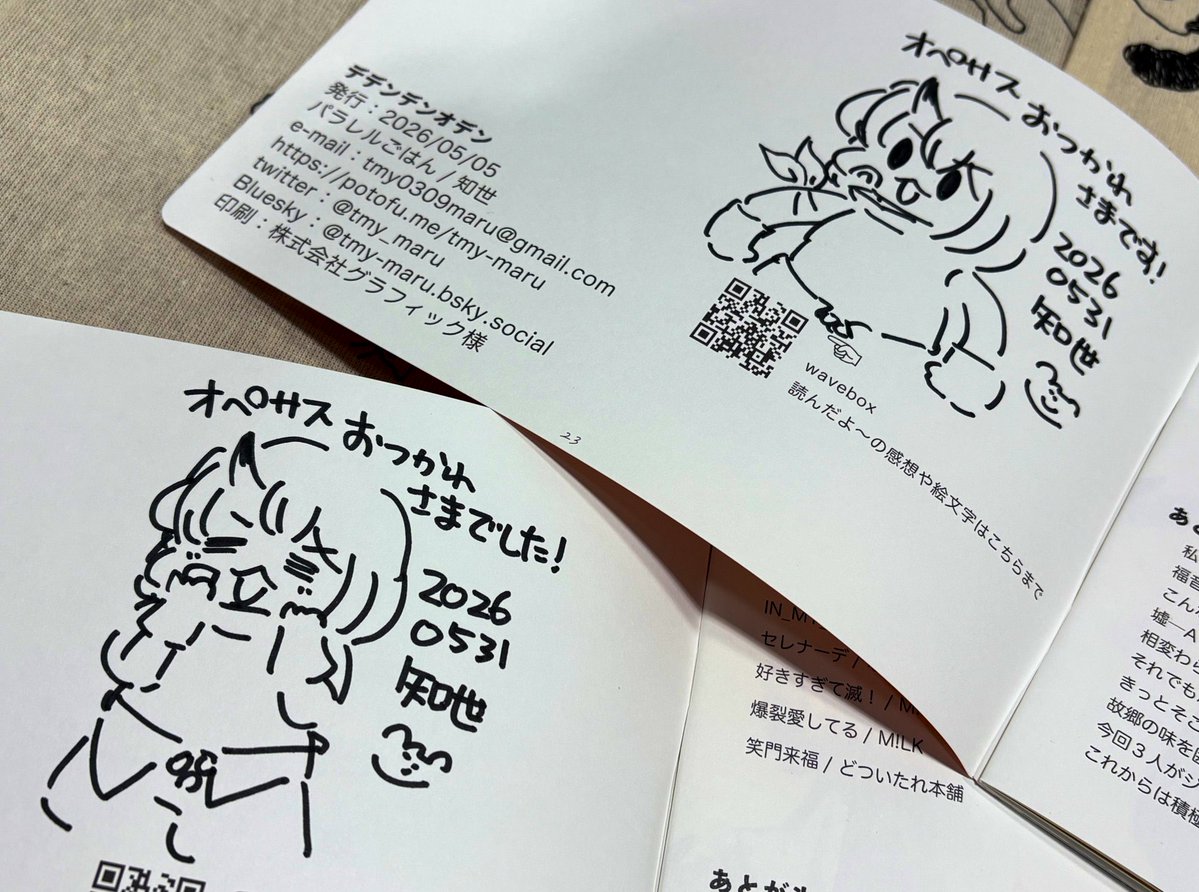 デデンデンオデン
発行：2026/05/05
パラレルごはん / 知世
e-mail：tmy0309maru@gmail.com
https://potofu.me/tmy-maru
twitter：@tmy_maru
Bluesky：@tmy-maru.bsky.social
印刷：株式会社グラフィック様
オペロサス おつかれ
さまです!
2026
0531
知世
wavebox
読んだよ〜の感想や絵文字はこちらまで
23
オペロサス おつかれ
さまでした!
2026
0531
知世
セレナーデ /
好きすぎて滅！ / M
爆裂愛してる / M!LK
笑門来福 / どついたれ本舗
私
福音
こん
墟―A
相変わら
それでも
きっとそこ
故郷の味を
今回３人がジ
これからは積極